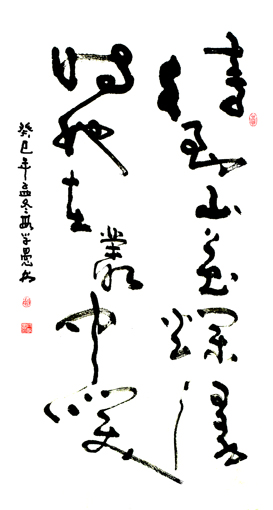 待到山花爛漫
時她在叢中笑
癸巳年孟冬